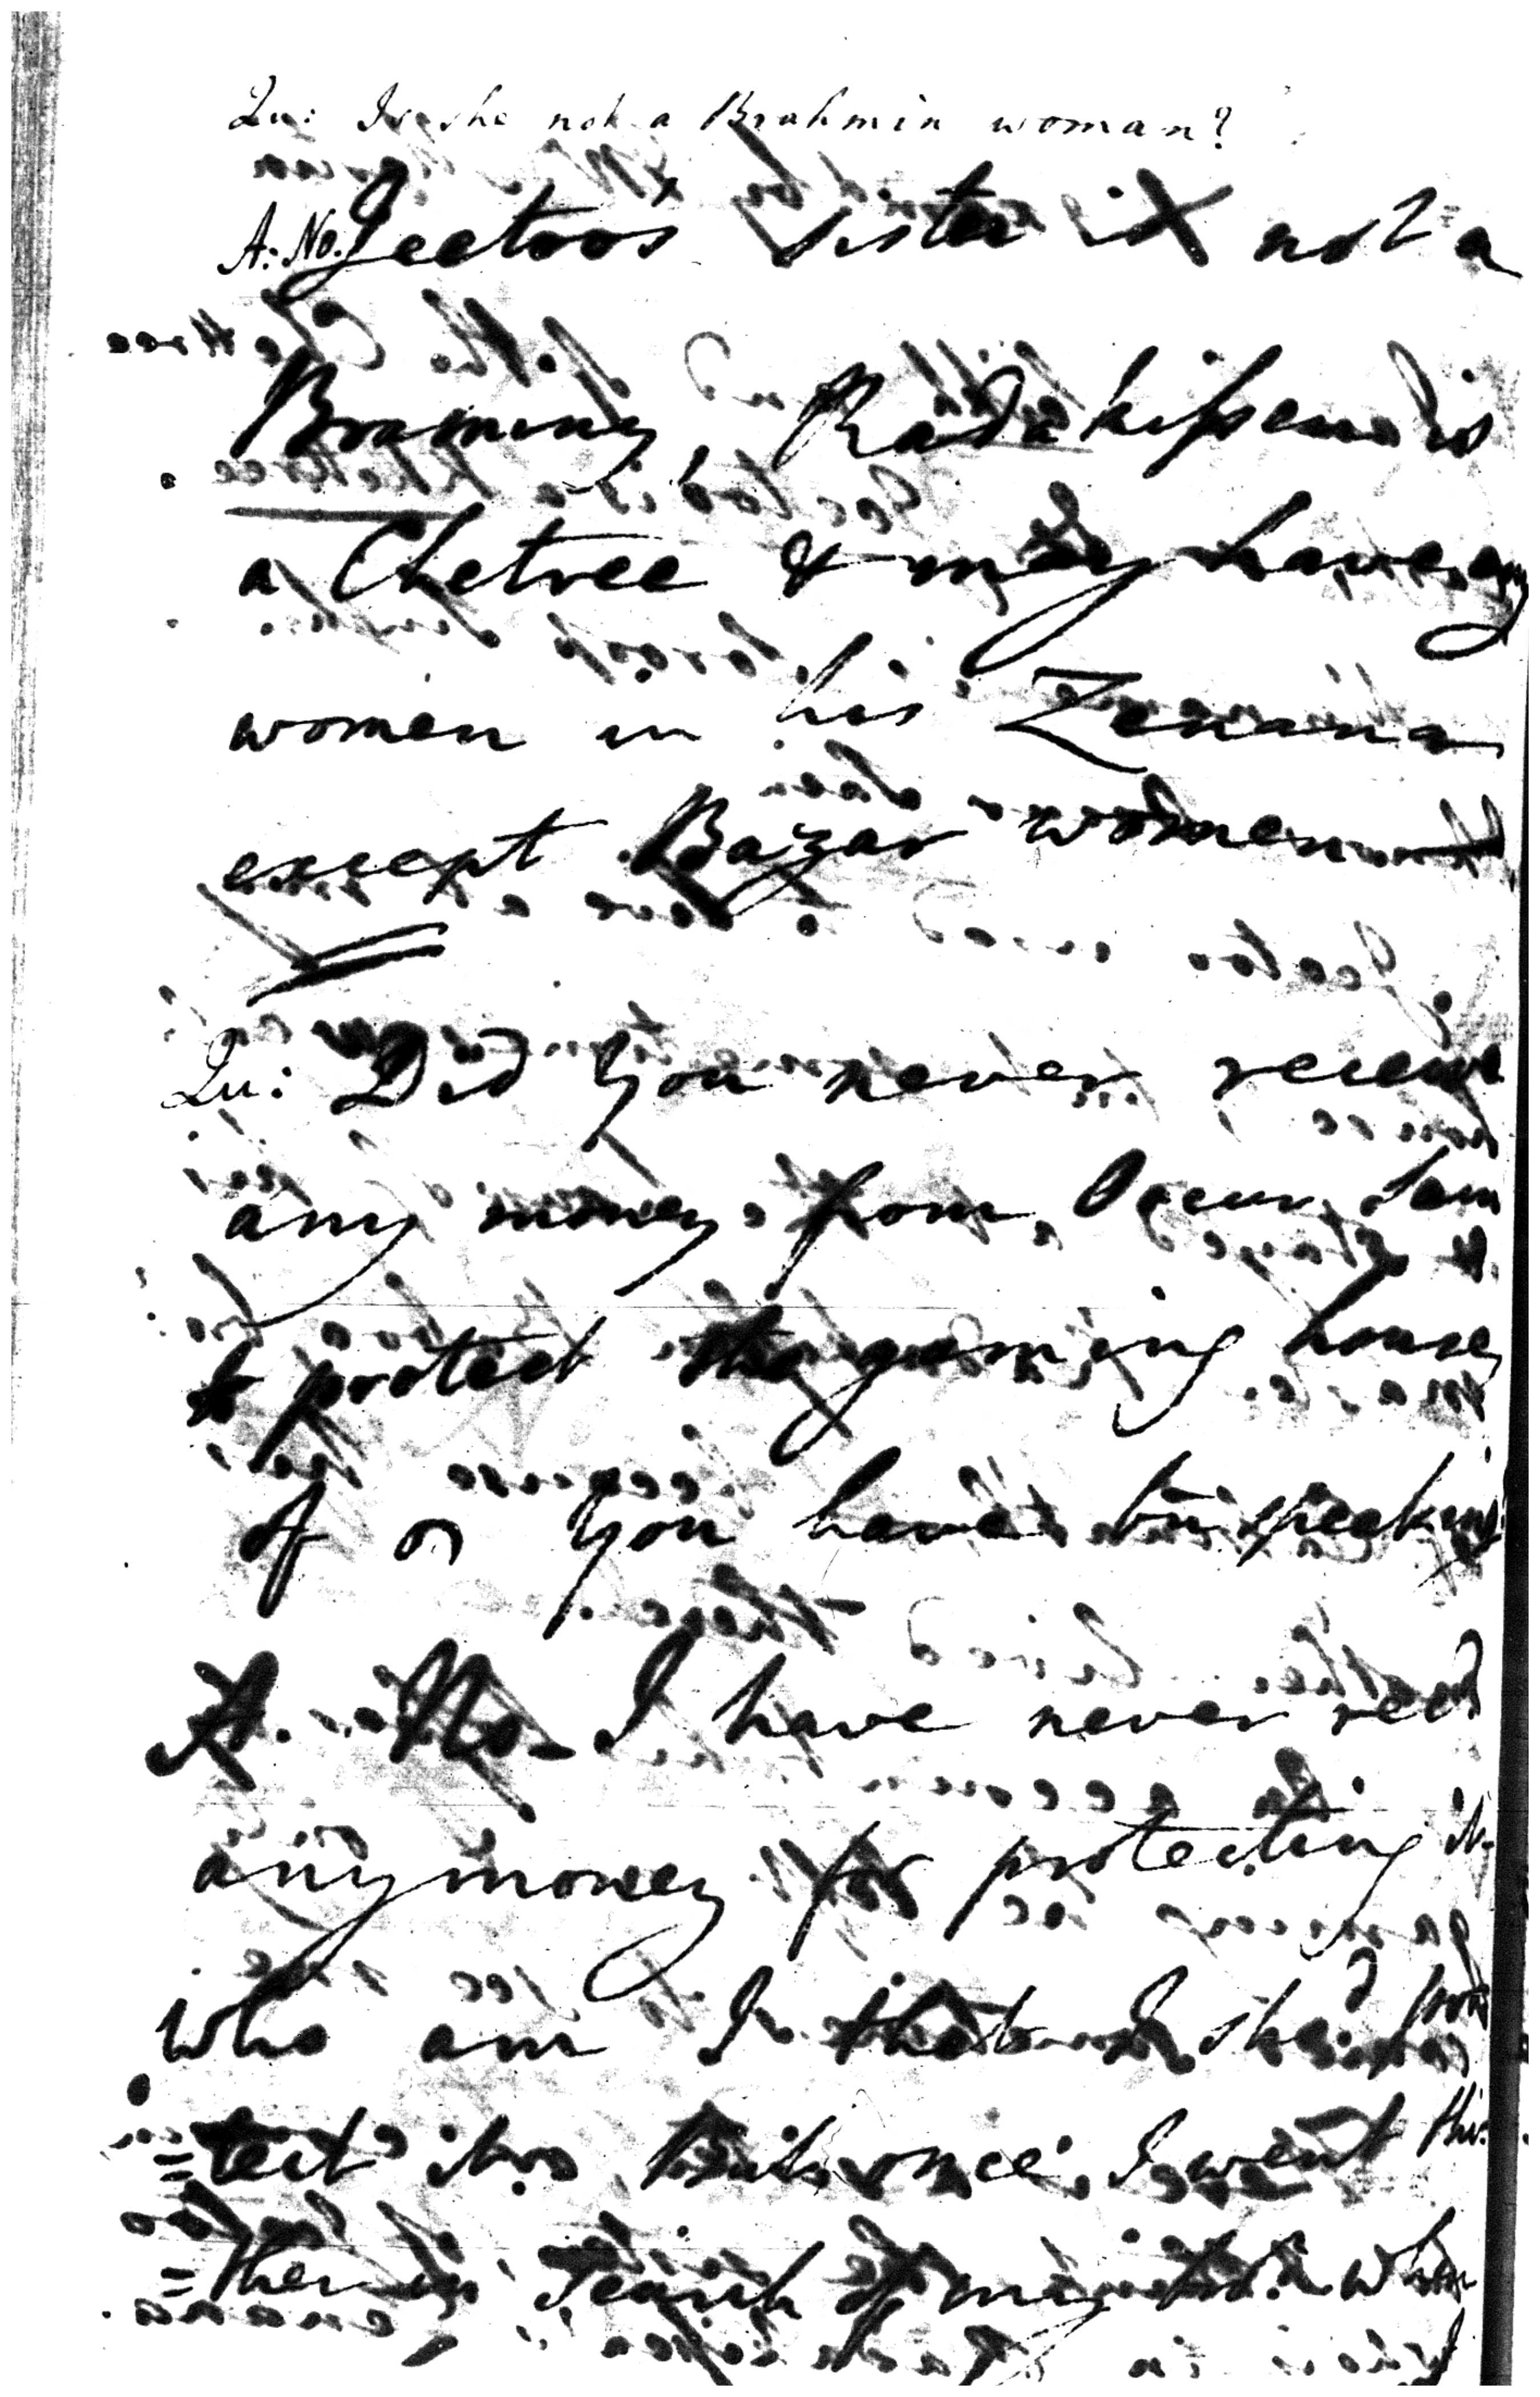 Qu: Is she not a Brahmin woman?
A: No. Jeetoos sister is not a
Braminy, Radakissen is
a Chetree & may have any
women in his Zenana
except Bazar women
Qu: Did you never receive
any money from
to protect the gaming house
of or you have bn speaking
A. No – I have never recd
any money for protecting it
who am I that I shd pro
=tect it once I went thi
=ther in search of my when